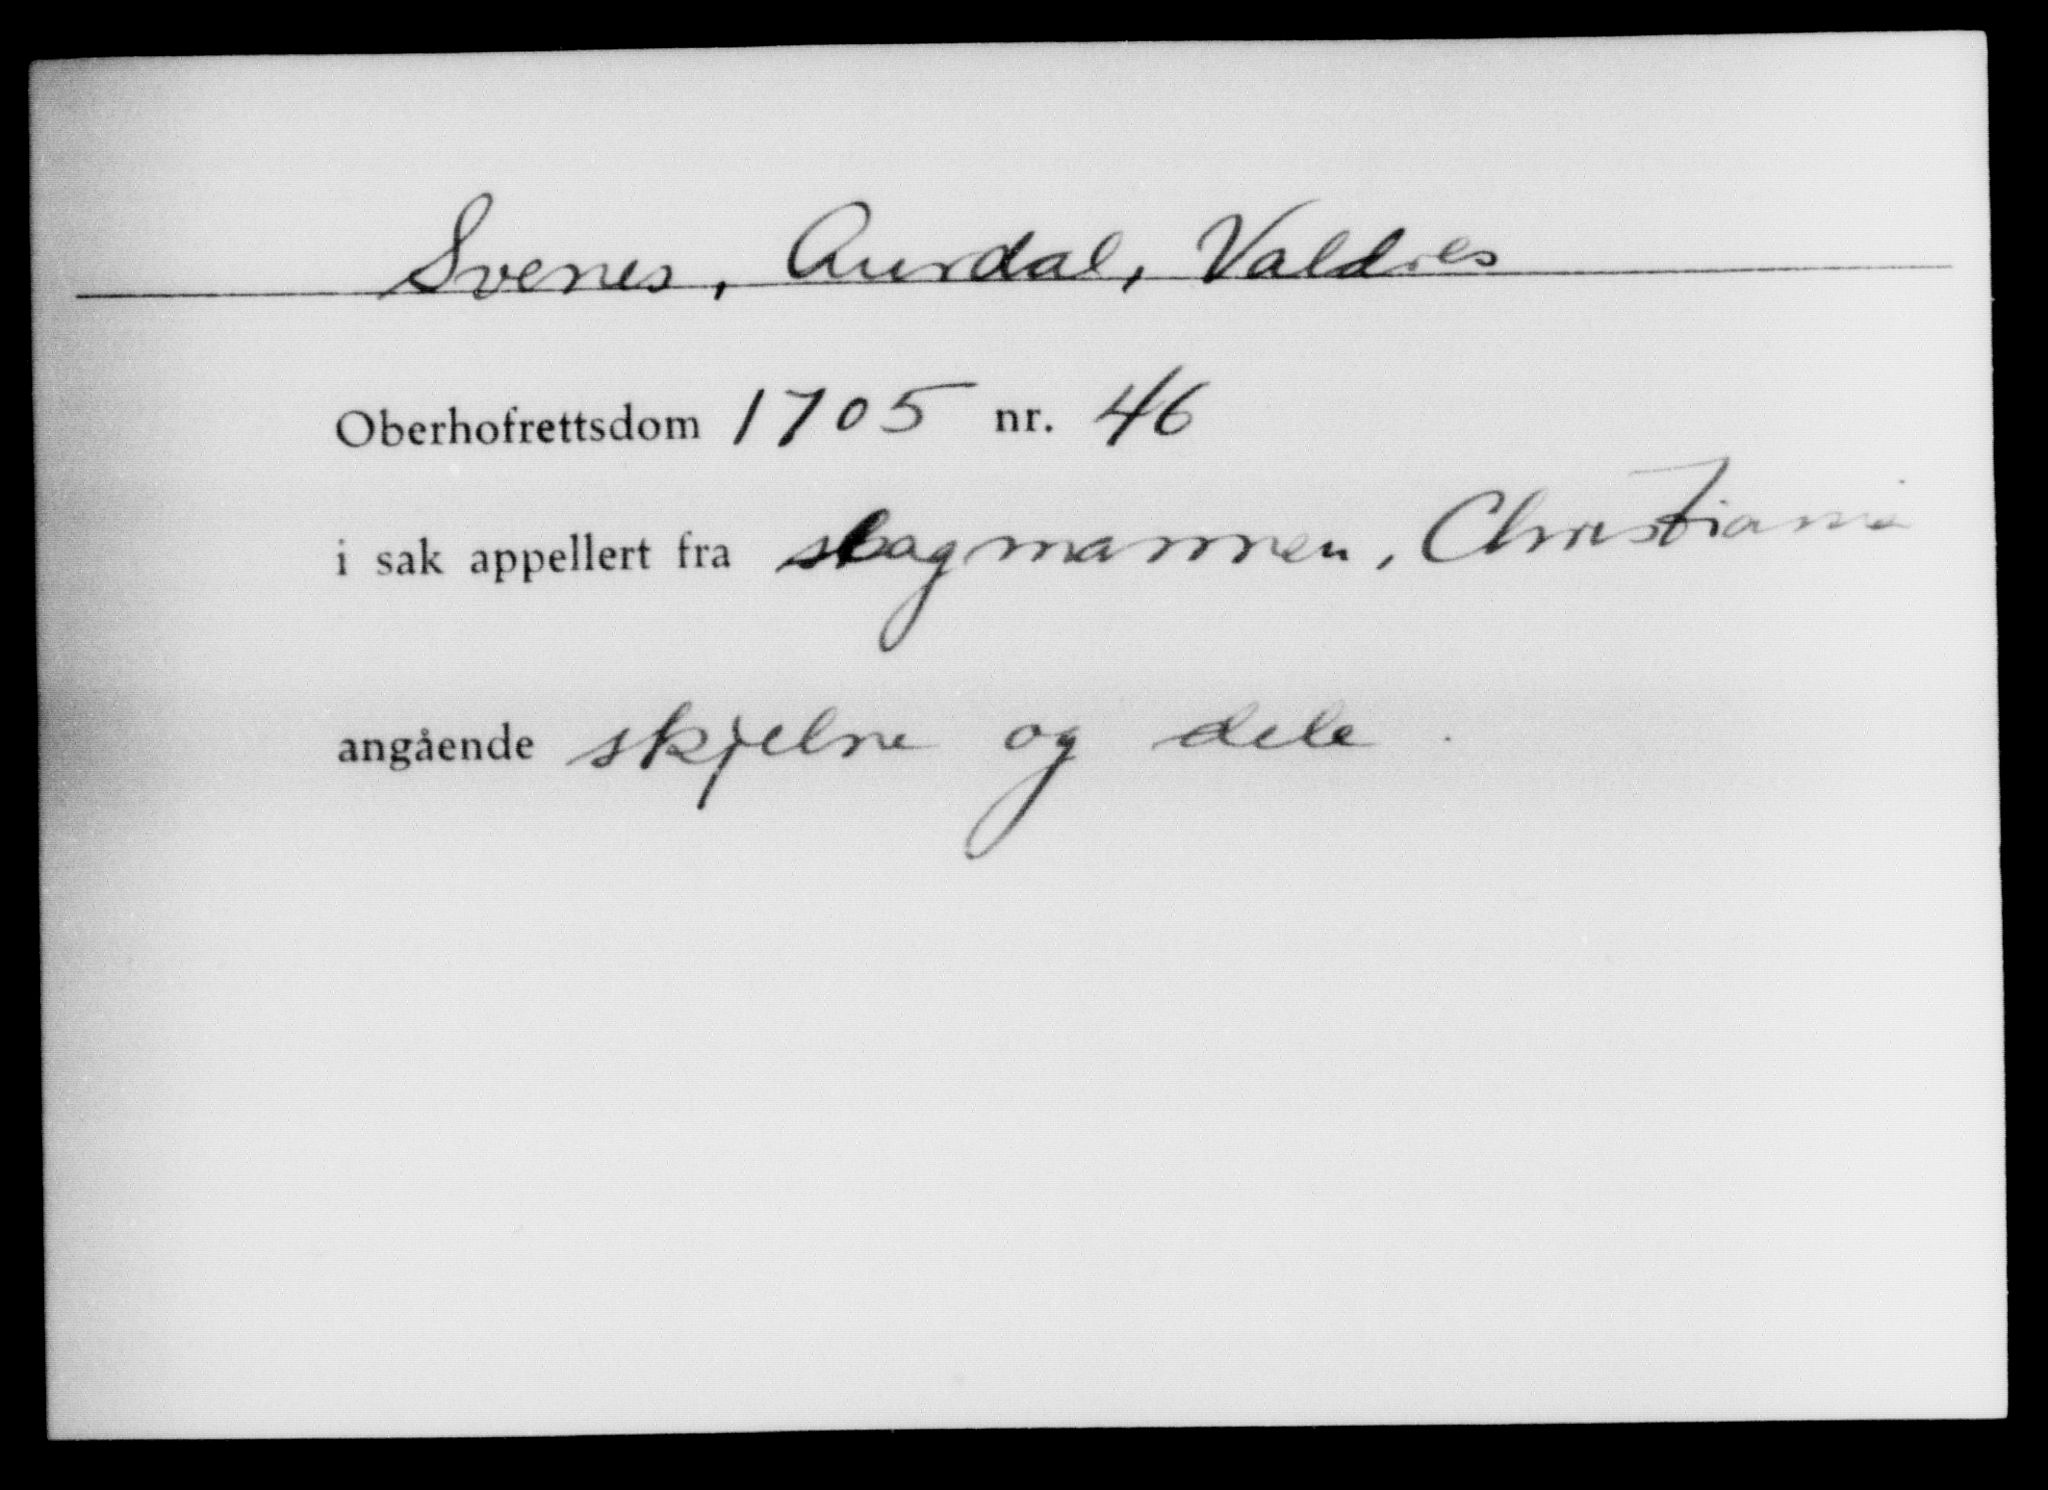 Svenes, Aurdal, Valdres
Oberhofrettsdom 1705 nr. 46
i sak appellert fra lagmannen, Christiania
angående skjelne og dele.